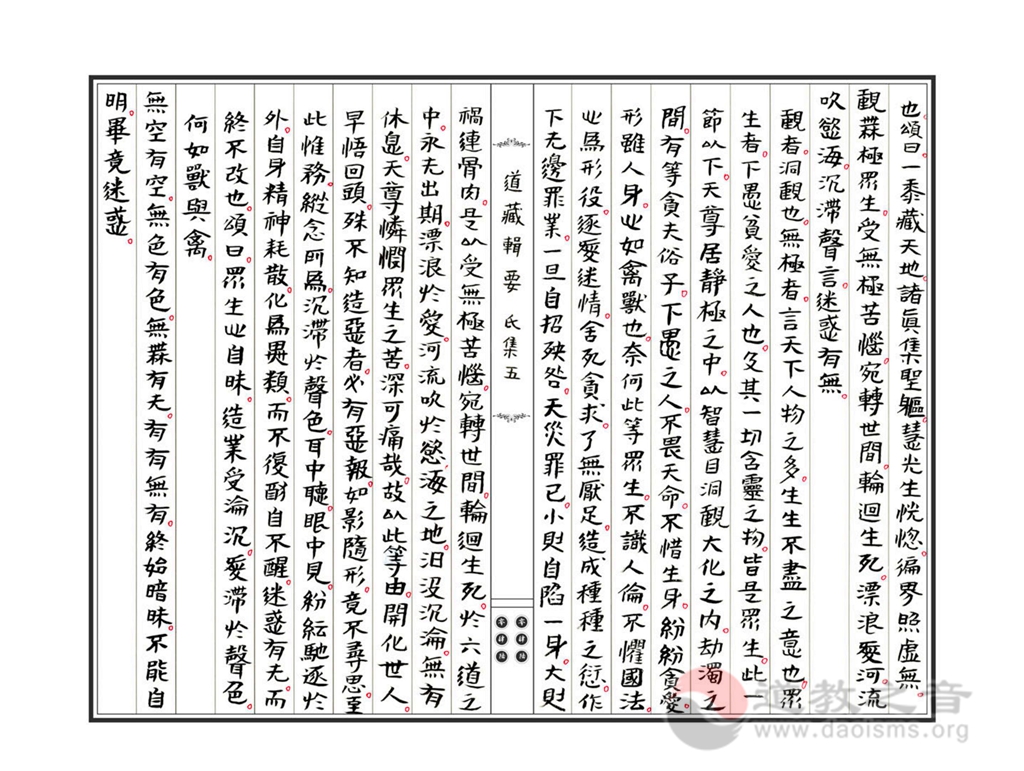 也頌曰一黍藏天地。諸眞集聖軀。慧光生恍惚。徧界照虛無。
觀橆極眾生。受無極苦惱。宛轉世間。輪迴生死。漂浪愛河。流
吹慾海。沉滯聲言。迷惑有無。
觀者。洞觀也。無極者。言天下人物之多。生生不盡之意也。眾
生者。下愚貧愛之人也。及其一切含靈之物。皆是眾生。此一
節以下。天尊居靜極之中。以智慧目洞觀大化之內。劫濁之
間。有等貪夫俗子。下愚之人。不畏天命。不惜生身。紛紛貪愛。
形雖人身。心如禽獸也。奈何此等眾生。不識人倫。不懼國法。
心爲形役。逐愛迷情。舍死貪求。了無厭足。造成種種之愆。作
下无邊罪業。一旦自招殃咎。天災罪己。小則自陷一身。大則
道藏輯要 氐集五
禍連骨肉。是以受無極苦惱。宛轉世間。輪迴生死。於六道之
中。永无出期。漂浪於愛河。流吹於慾海之地。汨没沉淪。無有
休息。天尊憐憫眾生之苦。深可痛哉。故以此等由。開化世人。
早悟回頭。殊不知造惡者。必有惡報。如影隨形。竟不尋思。至
此惟務縱念所爲。沉滯於聲色。耳中聽。眼中見。紛紜馳逐於
外。自身精神耗散。化爲異類。而不復酧。自不醒。迷惑有无。而
終不改也。頌曰。眾生心自昧。造業受淪沉。愛滯於聲色。
何如獸與禽。
無空有空。無色有色。無橆有无。有有無有。終始暗昧。不能自
明。畢竟迷惑。
道教之音
www.daoisms.org